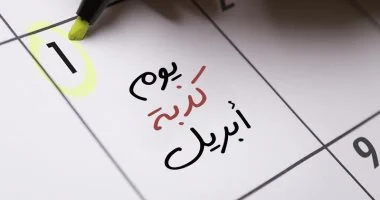 1
2
يوم
كذبة
أبريل
9